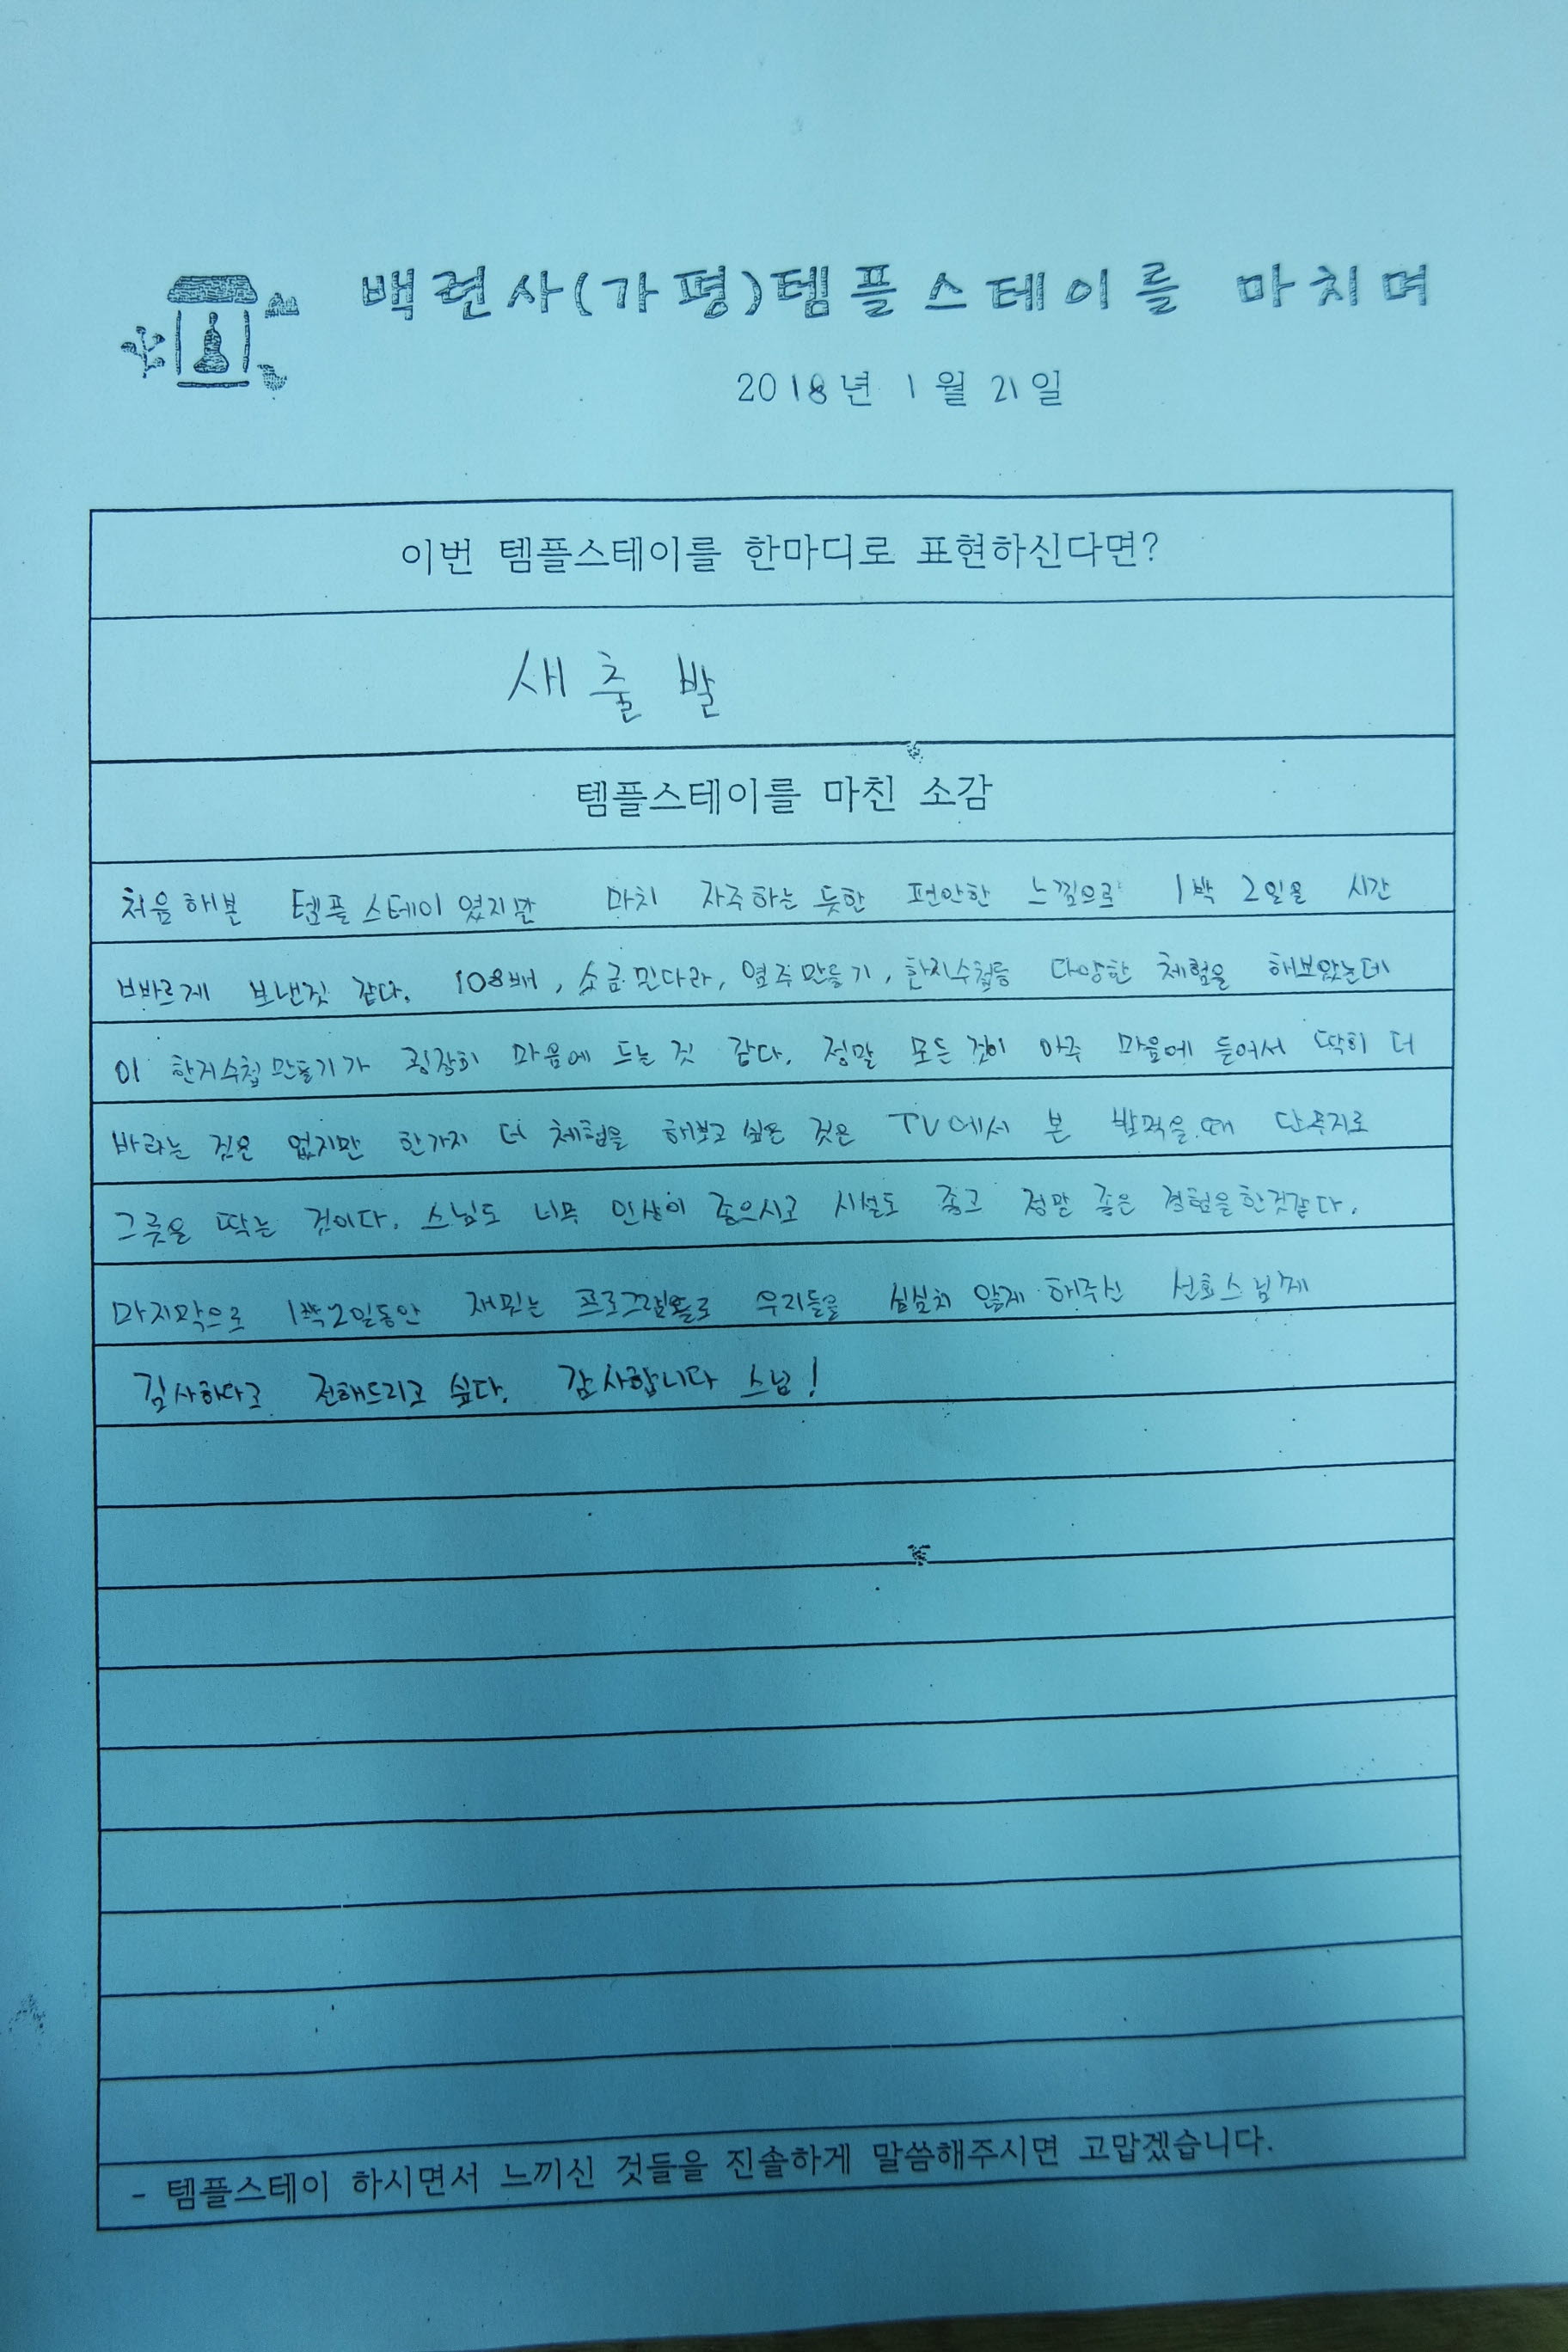 백련사(가평)템플스테이를 마치며
2018년 1월 21일
이번 템플스테이를 한마디로 표현하신다면?
새출발
템플스테이를 마친 소감
처음해본 템플스테이였지만 마치 자주하는 듯한 편안한 느낌으로 1박 2일을 시간
빠르게 보낸것 같다. 108배, 소금만다라, 염주만들기, 한지수첩등 다양한 체험을 해보았는데
이 한지수첩만들기가 굉장히 마음에 드는 것 같다. 정말 모든 것이 아주 마음에 들어서 딱히 더
바라는 것은 없지만 한가지 더 체험을 해보고 싶은 것은 TV에서 본 밥먹을때 단무지로
그릇을 딱는 것이다. 스님도 너무 인상이 좋으시고 시설도 좋고 정말 좋은 경험을한것같다.
마지막으로 1박2일동안 재밌는 프로그램들로 우리들을 심심치 않게 해주신 선효스님께
감사하다고 전해드리고 싶다. 감사합니다 스님!
- 템플스테이 하시면서 느끼신 것들을 진솔하게 말씀해주시면 고맙겠습니다.